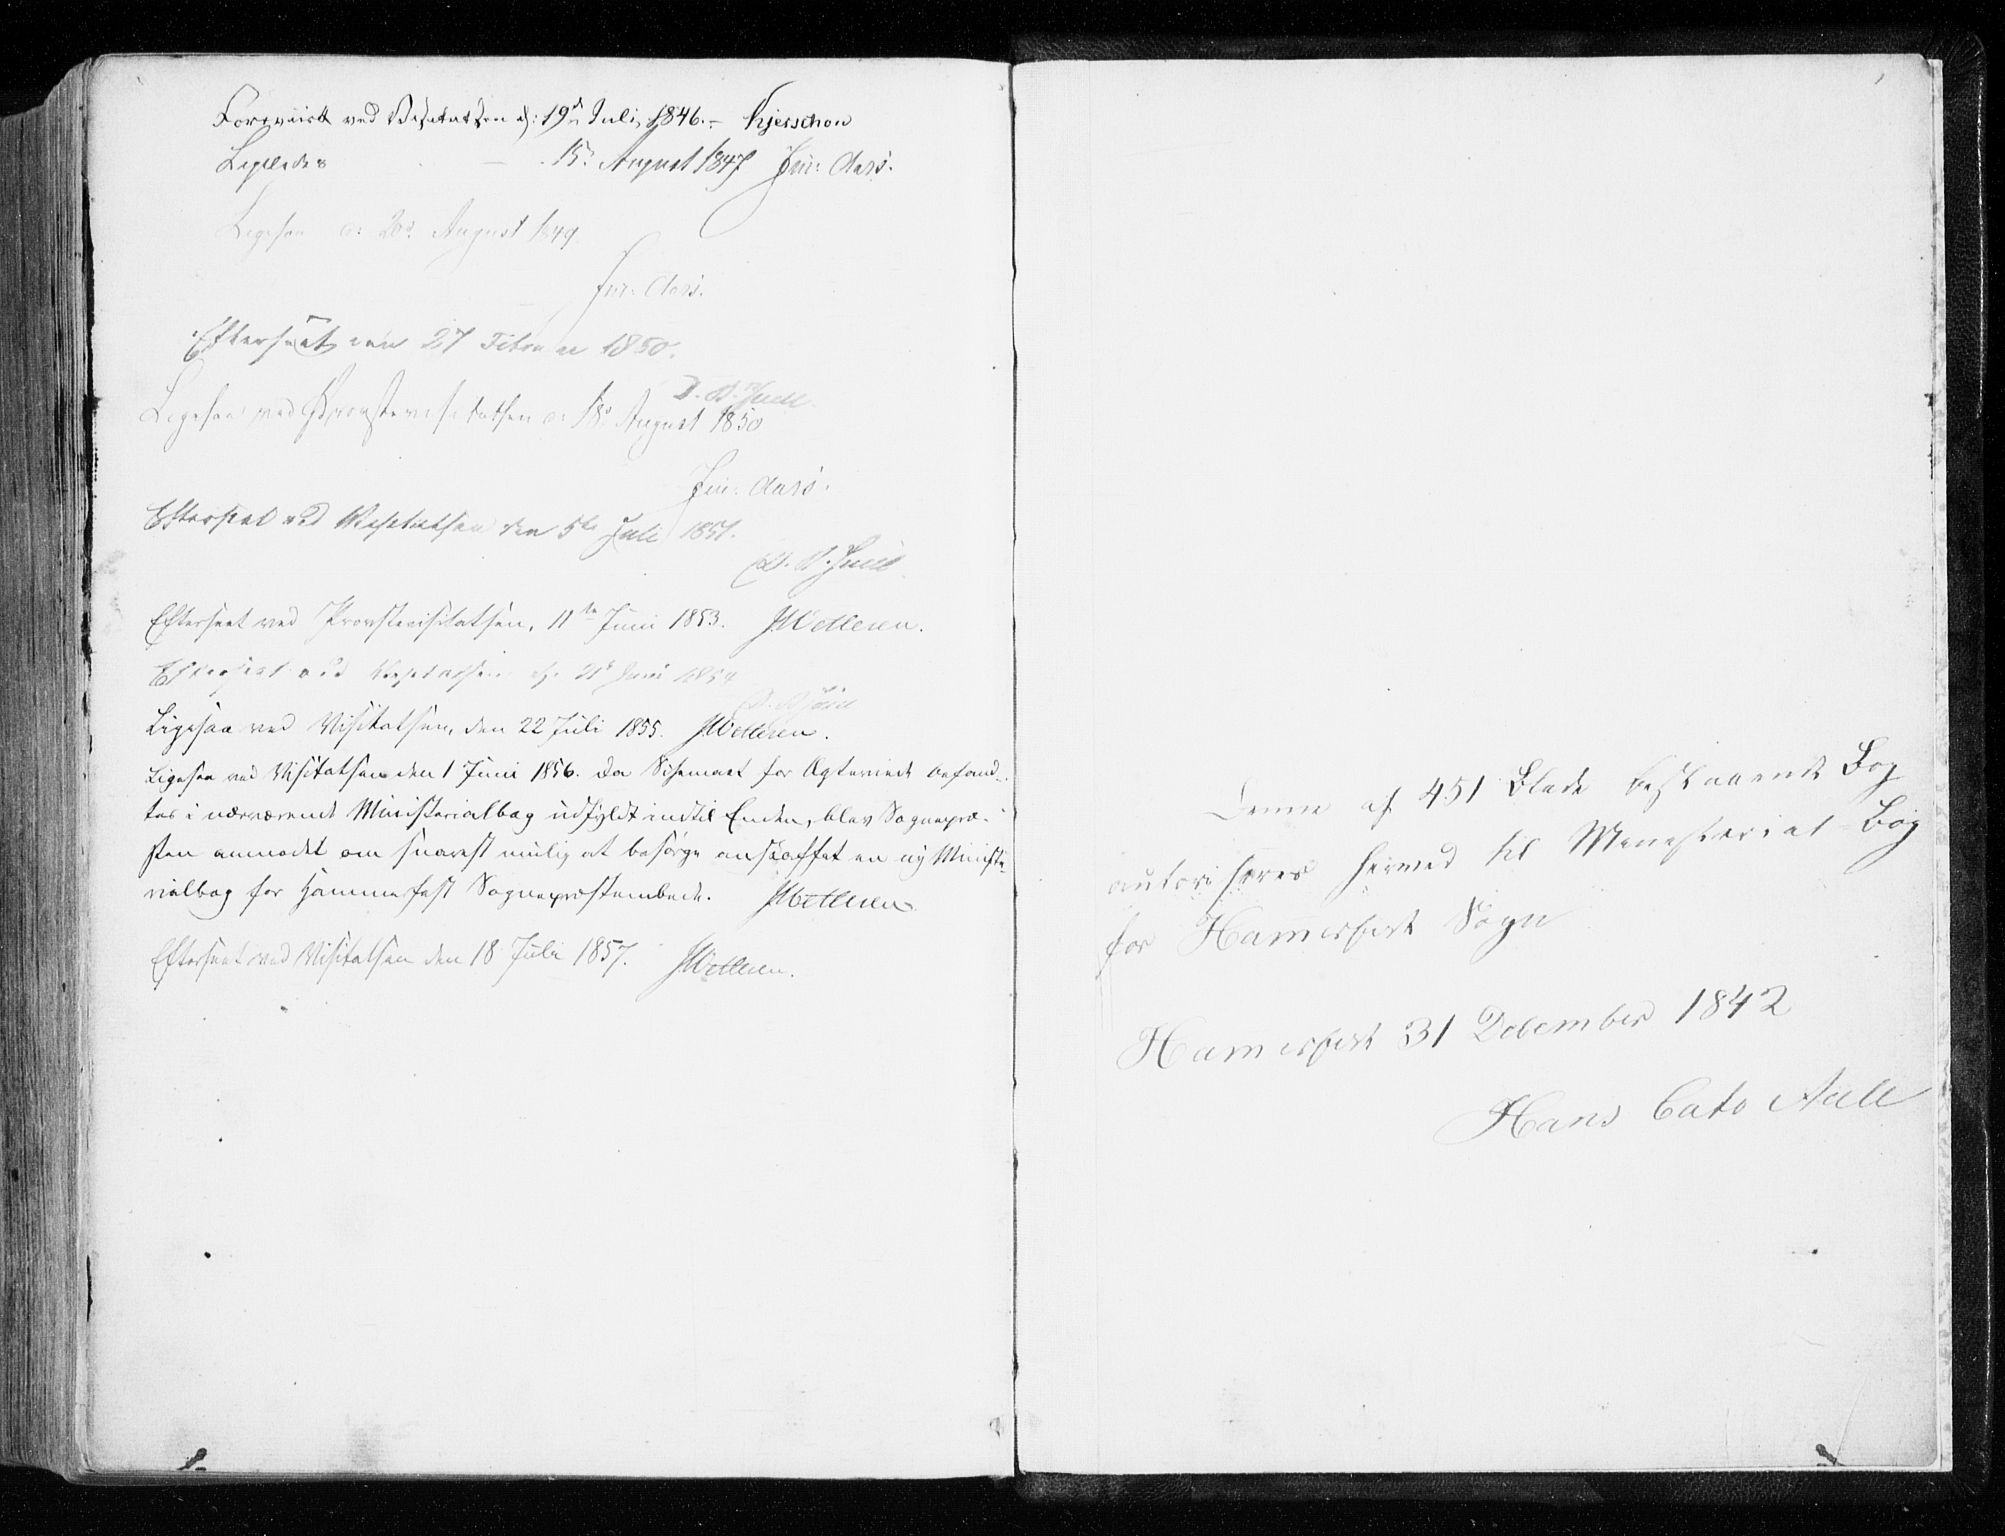 Foreviist ved Visitatsen d: 19de Juli, 1846.- Kjerschow
Ligeledes - 15de August 1847 Jur: Aars.
Ligesaa d: 20de August 1849
Jur: Aars.
Efterseet den 27 Februar 1850.
D. B. Juell
Ligesaa ved Provstevisitatsen d: 18de August 1850
Jur: Aars.
Efterseet ved Visitatsen den 5te Juli 1851.
D. B. Juell
Efterseet ved Provstevisitatsen, 11te Juni 1853. JWettesen.
Efterseet ved Visitatsen d. 21de Juni 1854
D. B. Juell
Ligesaa ved Visitatsen, den 22 Juli 1855. JWettesen.
Ligesaa ved Visitatsen den 1 Juni 1856. Da Schemaet for Ægteviede befand-
tes i nærværende Ministerialbog udfyldt indtil Enden, blev Sognepræ-
sten anmodet om snarest mulig at besørge anskaffet en ny Ministe-
rialbog for Hammerfest Sognepræstembede. JWettesen
Efterseet ved Visitatsen den 18 Juli 1857. JWettesen.
Denne af 451 Blade bestaaende Bog
autoriseres hermed til Ministerial-Bog
for Hamerfest Sogn
Hamerfest 31 December 1842
Hans Cato Aall